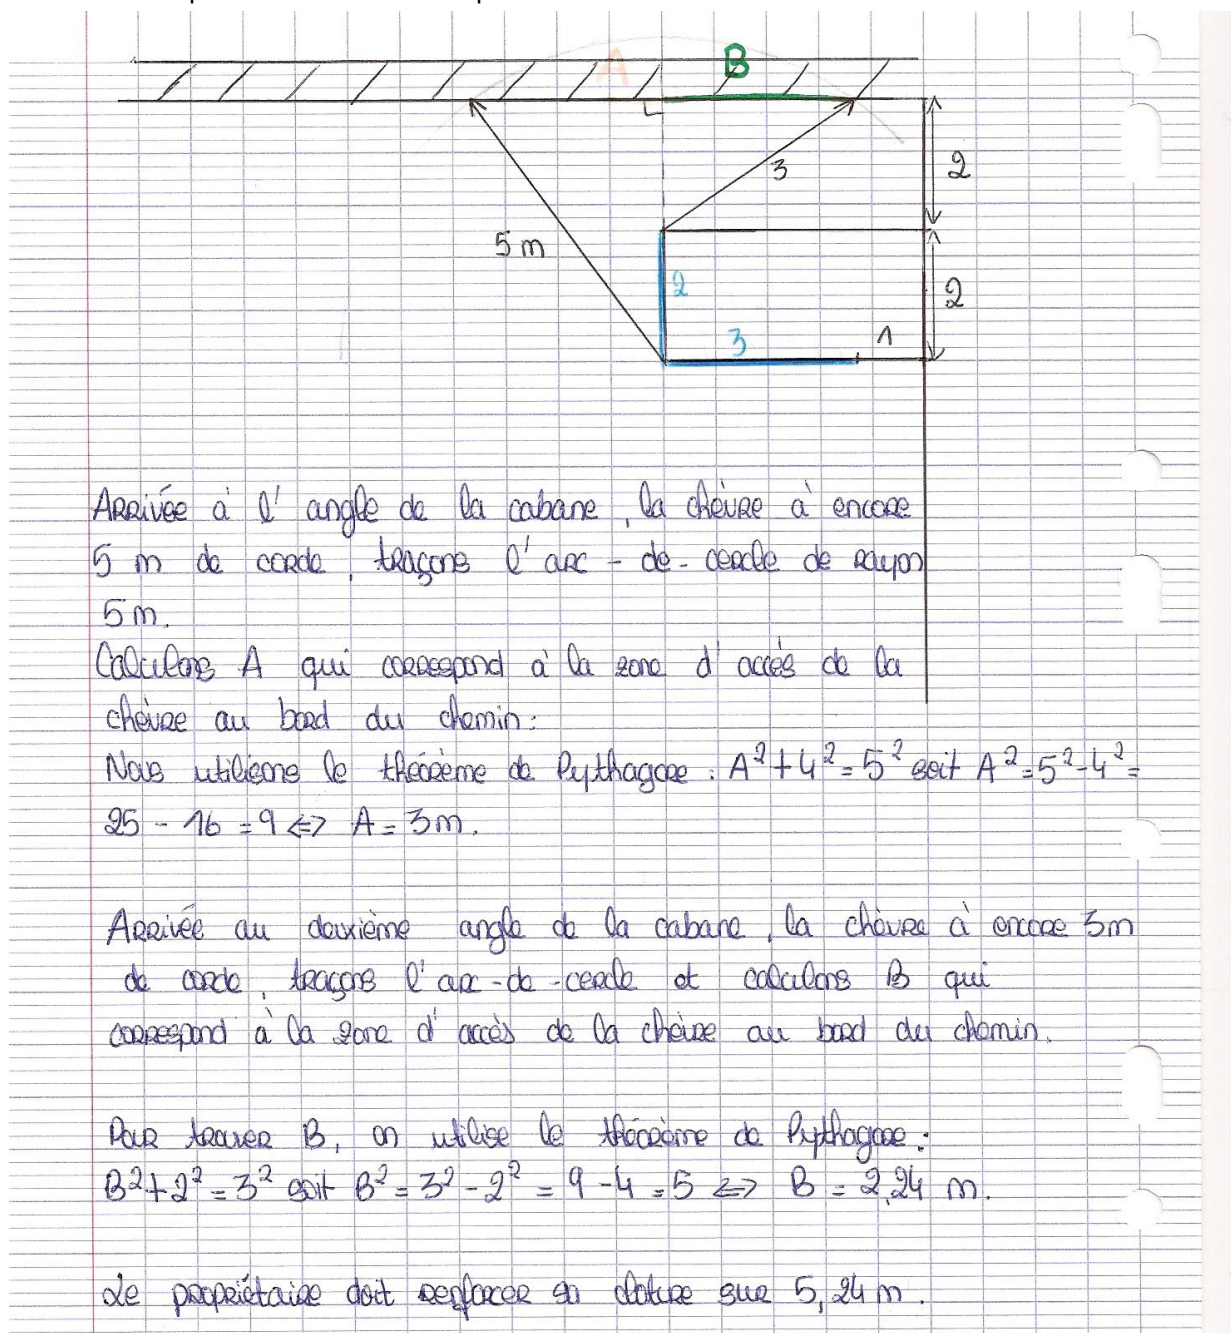 A
B
3
2
5 m
2
2
3
1
Arrivée à l'angle de la cabane, la chèvre à encore
5 m de corde, traçons l'arc-de-cercle de rayon
5 m.
Calculons A qui correspond à la zone d'accés de la
chèvre au bord du chemin:
Nous utilisons le théorème de Pythagore : A² + 4² = 5² soit A² = 5² - 4² =
25 - 16 = 9 <=> A = 3m.
Arrivée au deuxième angle de la cabane, la chèvre à encore 3m
de corde, traçons l'arc-de-cercle et calculons B qui
correspond à la zone d'accès de la chèvre au bord du chemin.
Pour trouver B, on utilise le théorème de Pythagore :
B² + 2² = 3² soit B² = 3² - 2² = 9 - 4 = 5 <=> B = 2,24 m.
Le propriétaire doit renforcer sa cloture sur 5,24 m.